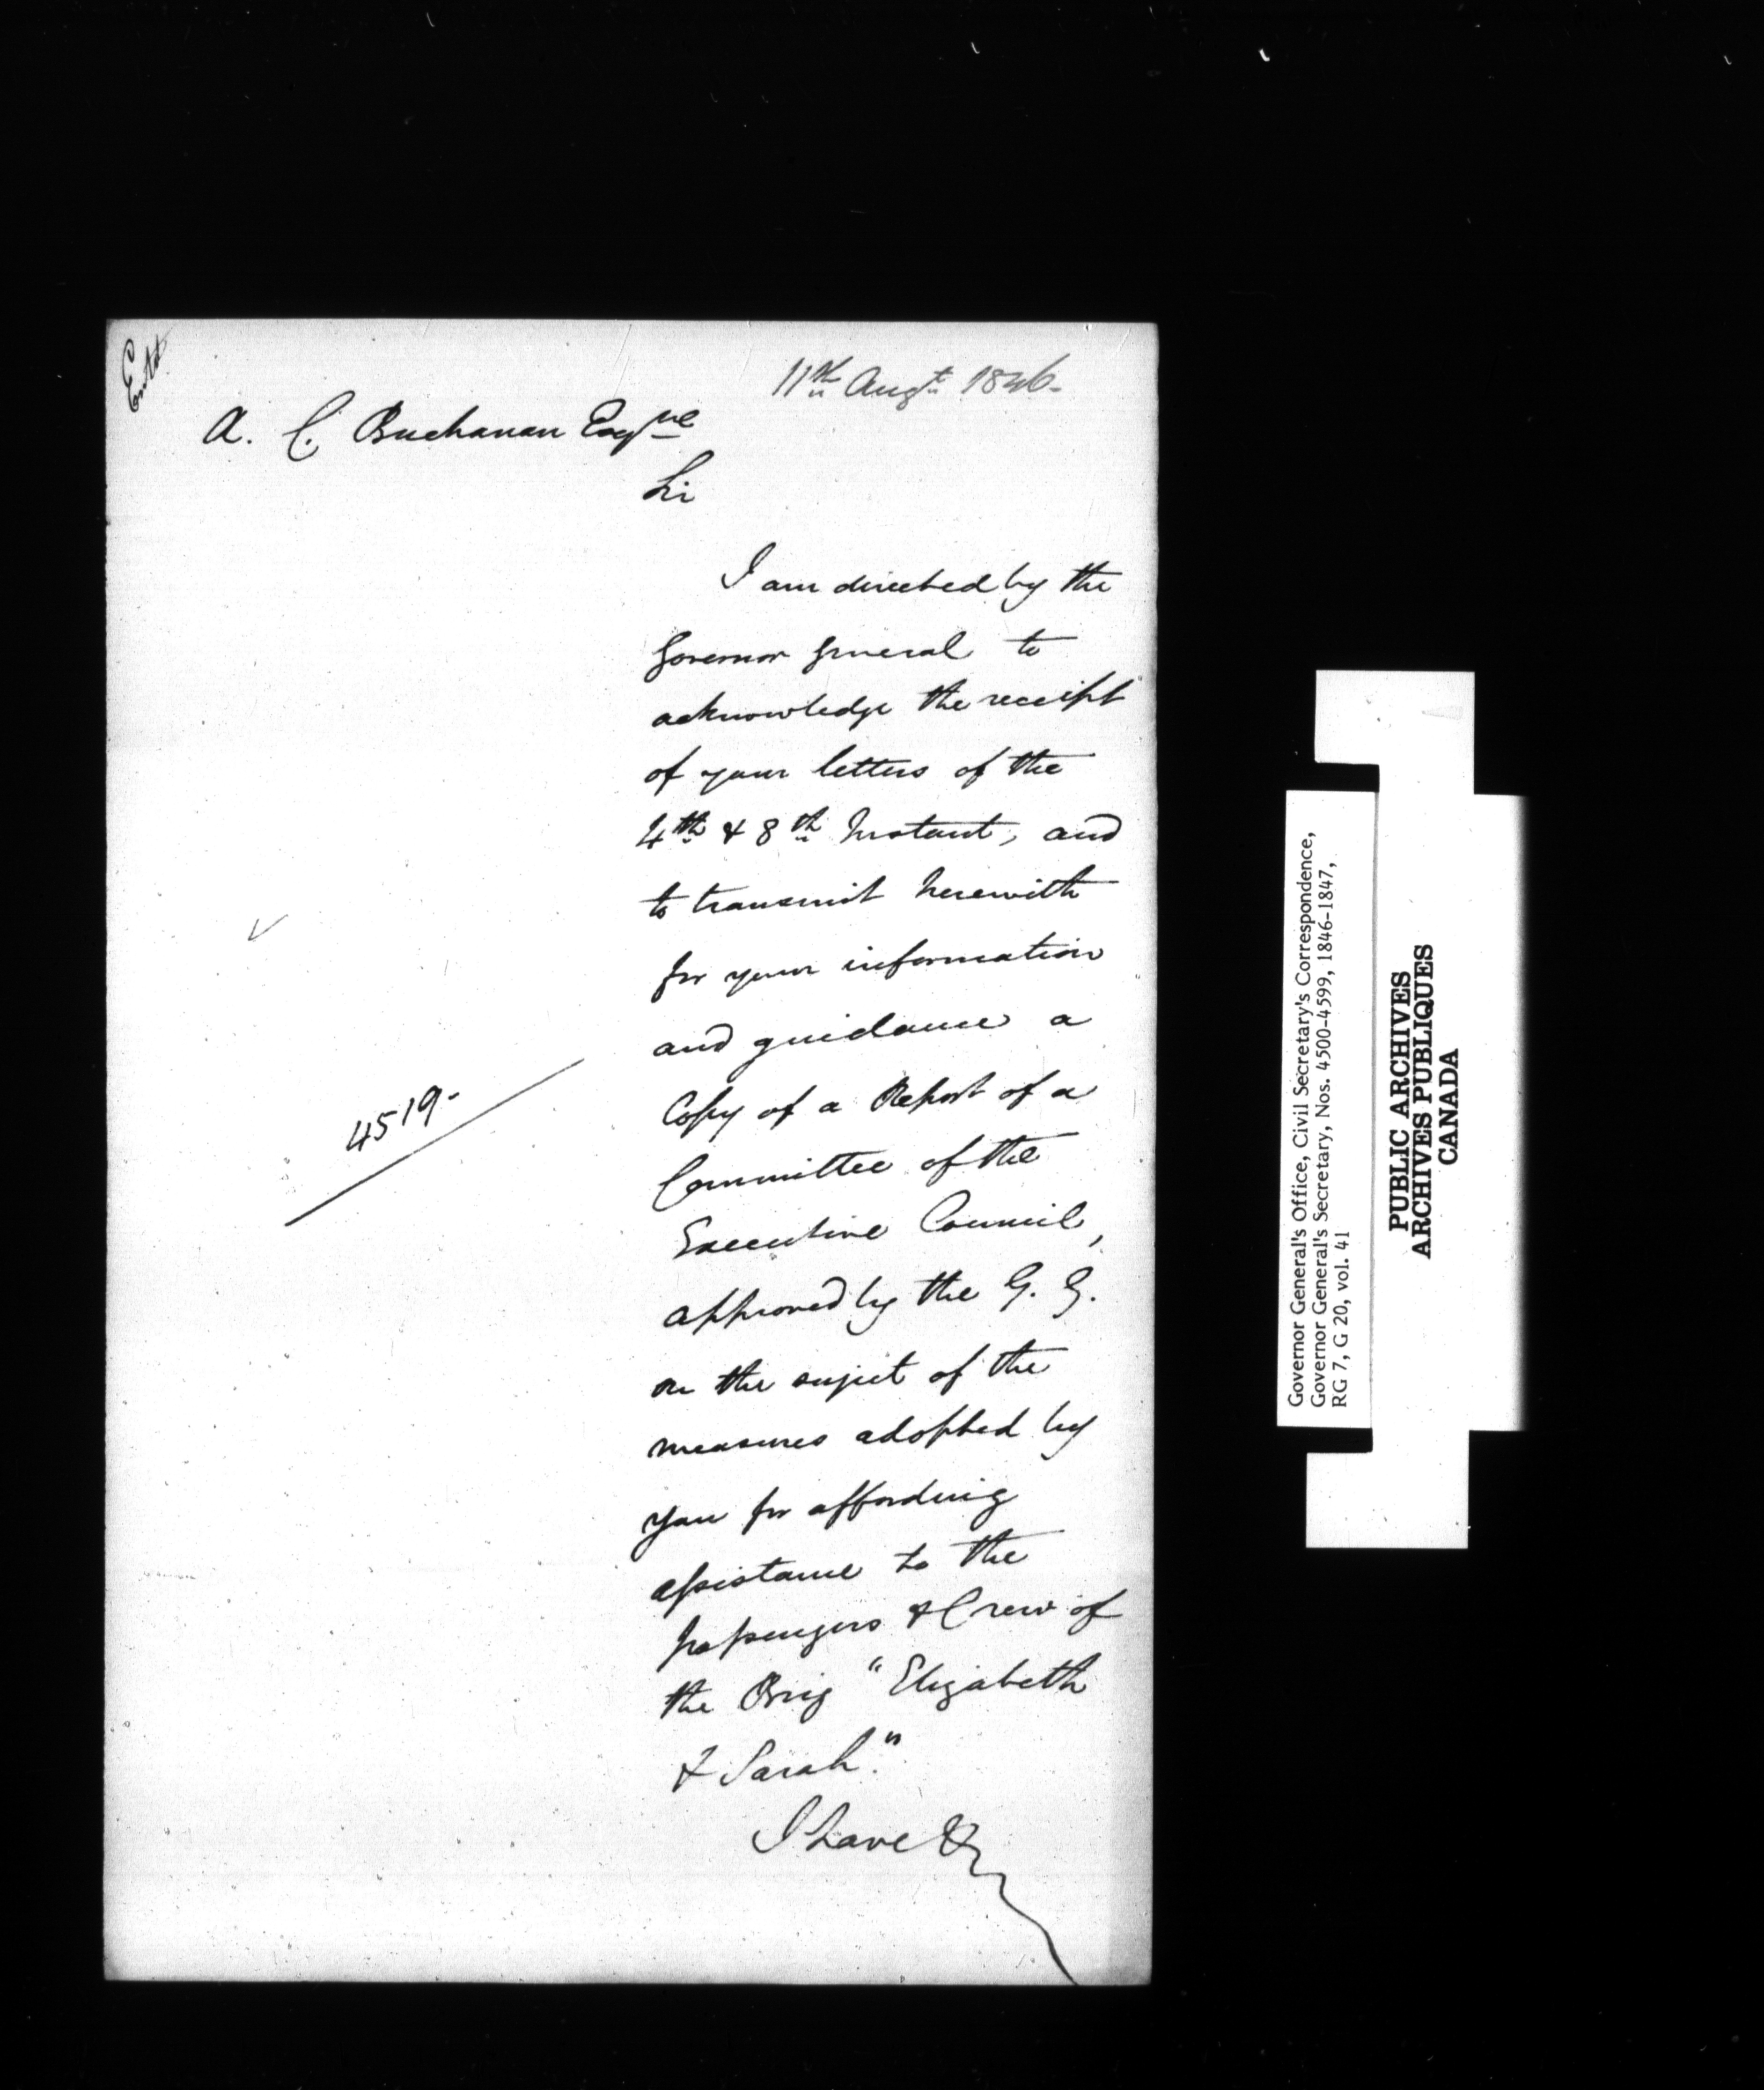 Entd
11th Augt 1846.
A. C. Buchanan Esqre
Sir
I am directed by the
Governor General to
acknowledge the receipt
of your letters of the
4th & 8th Instant, and
to transmit herewith
for your information
and guidance a
Copy of a Report of a
Committee of the
Executive Council,
approved by the G. G.
on the suject of the
measures adopted by
you for affording
assistance to the
passengers & Crew of
the Brig "Elizabeth
& Sarah."
I have &c
4519-
Governor General's Office, Civil Secretary's Correspondence,
Governor General's Secretary, Nos. 4500-4599, 1846-1847,
RG 7, G 20, vol. 41
PUBLIC ARCHIVES
ARCHIVES PUBLIQUES
CANADA